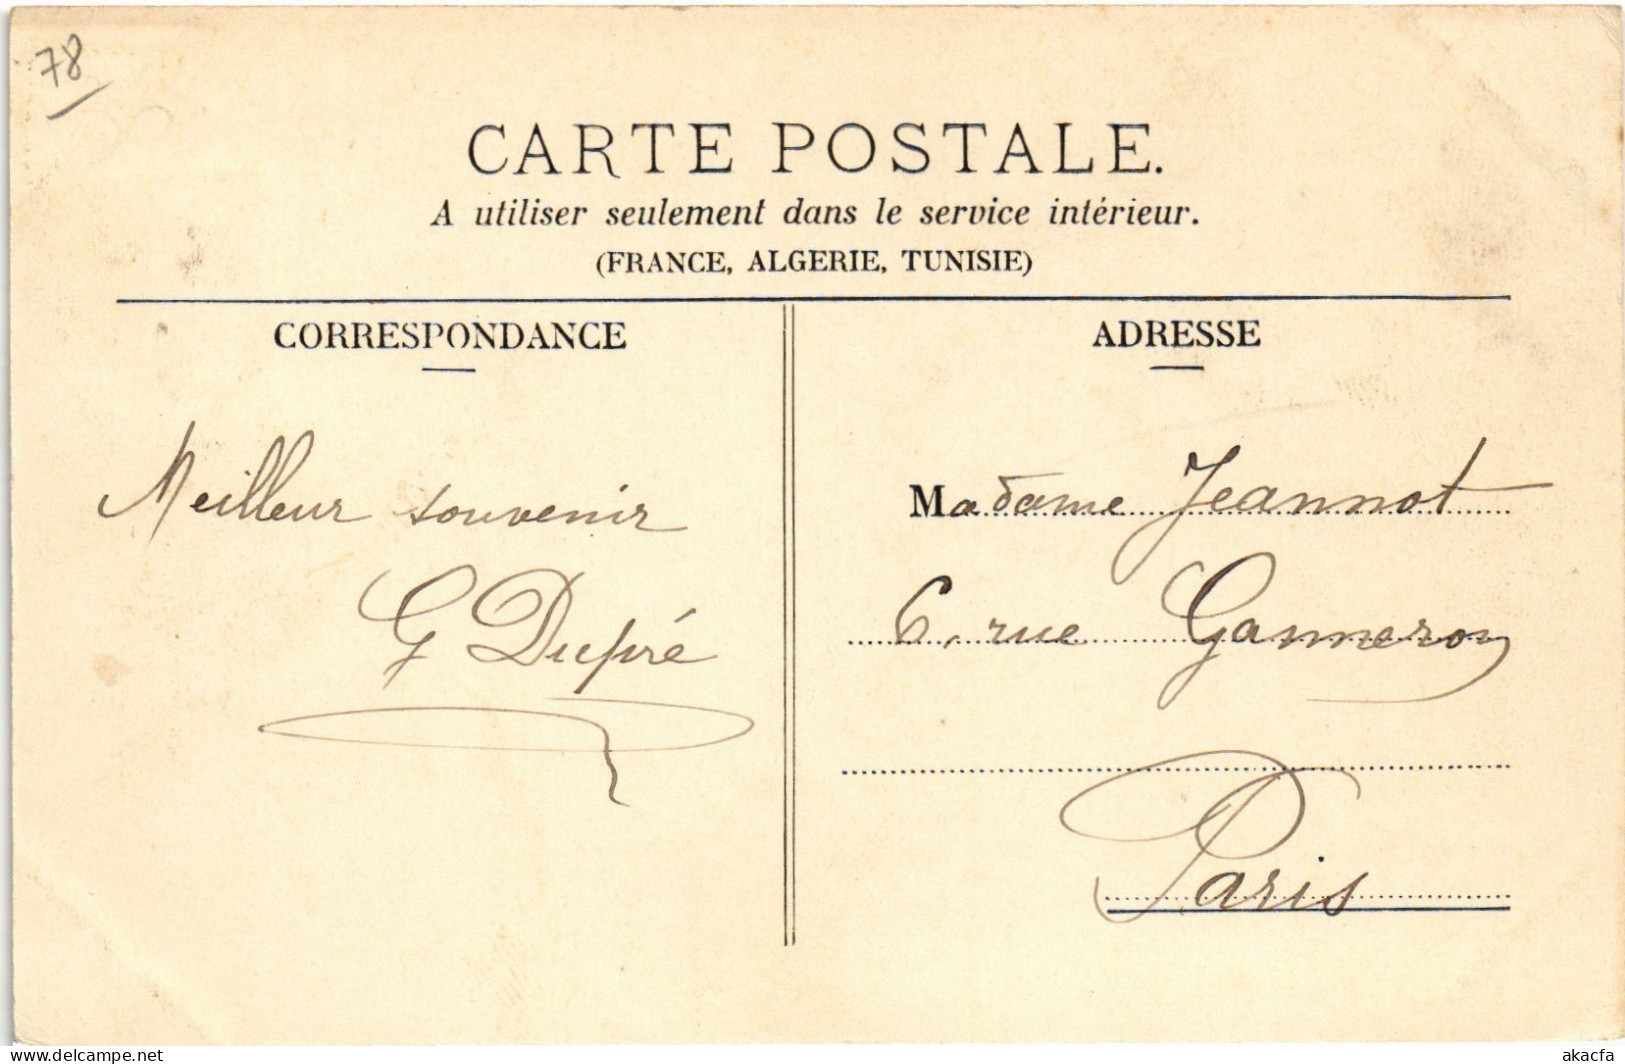 78
CARTE POSTALE.
A utiliser seulement dans le service intérieur.
(FRANCE, ALGERIE, TUNISIE)
CORRESPONDANCE
Meilleur souvenir
G Dupré
ADRESSE
Madame Jeannot
6, rue Ganneron
Paris
delcampe.net
akacfa